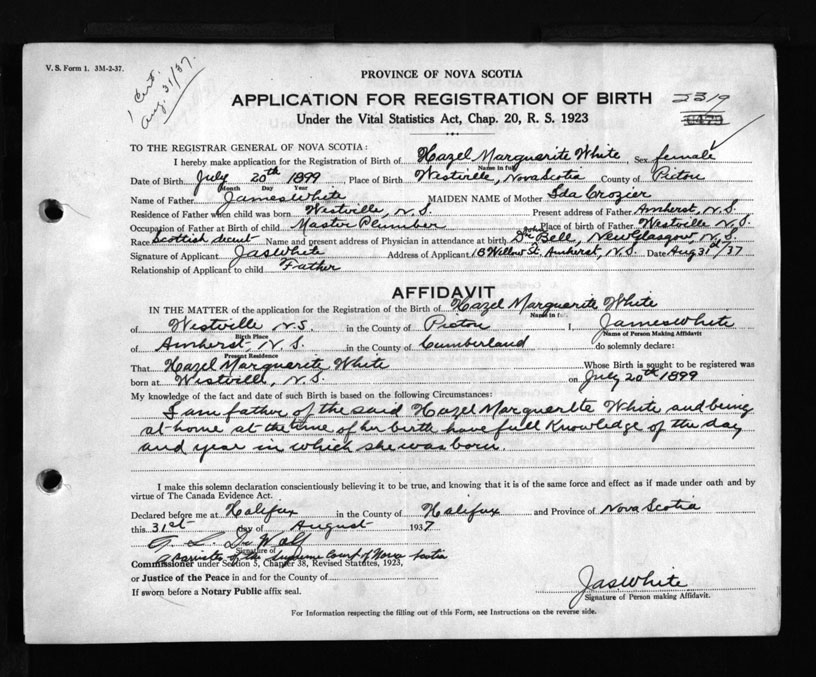 V. S. Form 1. 3M-2-37.
1 Cert.
Aug. 31/37.
PROVINCE OF NOVA SCOTIA
APPLICATION FOR REGISTRATION OF BIRTH
2319
Under the Vital Statistics Act, Chap. 20, R. S. 1923
TO THE REGISTRAR GENERAL OF NOVA SCOTIA:
I hereby make application for the Registration of Birth of Hazel Marguerite White, Sex female
Name in full
Date of Birth July 20th 1899, Place of Birth Westville, Nova Scotia County of Pictou
Month Day Year
Name of Father James White MAIDEN NAME of Mother Ida Crozier
Residence of Father when child was born Westville, N.S. Present address of Father Amherst, N.S.
Occupation of Father at Birth of child Master Plumber Place of Birth of Father Westville N.S.
Race Scottish decent Name and present address of Physician in attendance at birth Dr. Bell, New Glasgow, N.S.
Signature of Applicant Jas White Address of Applicant 16 Willow St, Amherst, N.S. Date Aug 31st/37
Relationship of Applicant to child Father
AFFIDAVIT
IN THE MATTER of the application for the Registration of the Birth of Hazel Marguerite White
Name in full
of Westville N.S. in the County of Pictou I, James White
Birth Place
Name of Person Making Affidavit
of Amherst, N.S. in the County of Cumberland do solemnly declare:
Present Residence
That Hazel Marguerite White Whose Birth is sought to be registered was
born at Westville, N.S. on July 20th 1899
My knowledge of the fact and date of such Birth is based on the following Circumstances:
I am father of the said Hazel Marguerite White and being
at home at the time of her birth have full knowledge of the day
and year in which she was born.
I make this solemn declaration conscientiously believing it to be true, and knowing that it is of the same force and effect as if made under oath and by
virtue of The Canada Evidence Act.
Declared before me at Halifax in the County of Halifax and Province of Nova Scotia
this 31st day of August 1937
Signature of
A Barrister of the Supreme Court of Nova Scotia
Commissioner under Section 5, Chapter 38, Revised Statutes, 1923,
or Justice of the Peace in and for the County of
If sworn before a Notary Public affix seal.
Jas White
Signature of Person making Affidavit.
For Information respecting the filling out of this Form, see Instructions on the reverse side.